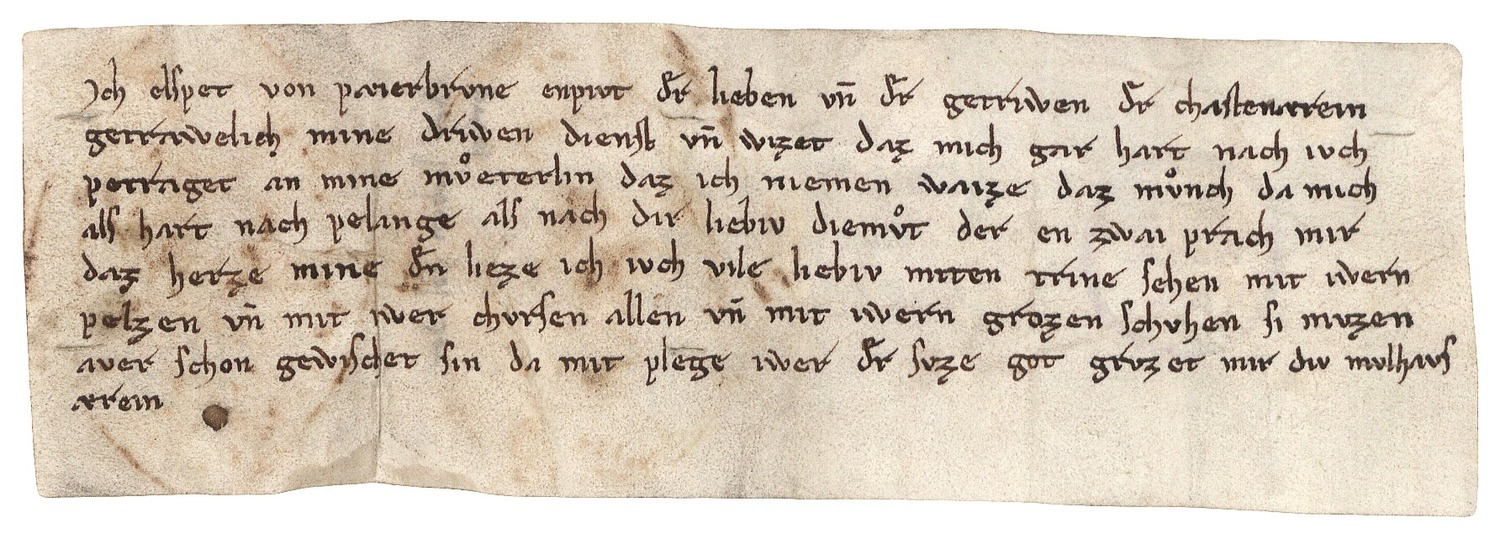 Ich elspet von paierbrvne enpivt dr̄ lieben vn̄ dr̄ getriwen dr̄ chastenærrein
getrawelich mine driwen dienst vn̄ wizet daz mich gar hart nach ivch
petraget an mine mv̊eterlin daz ich niemen waize daz mv̊nch da mich
als hart nach pelange als nach dir liebiv diemv̊t der en zwai prach mir
daz herze mine dn̄ lieze ich ivch vile liebiv miten trine sehen mit iwern
pelzen vn̄ mit iwer chvrsen allen vn̄ mit iwern grozen schvhen si mvzen
aver schon gewischet sin da mit plege iwer dr̄ svze got grvzet mir div mvlhavs
ærrein